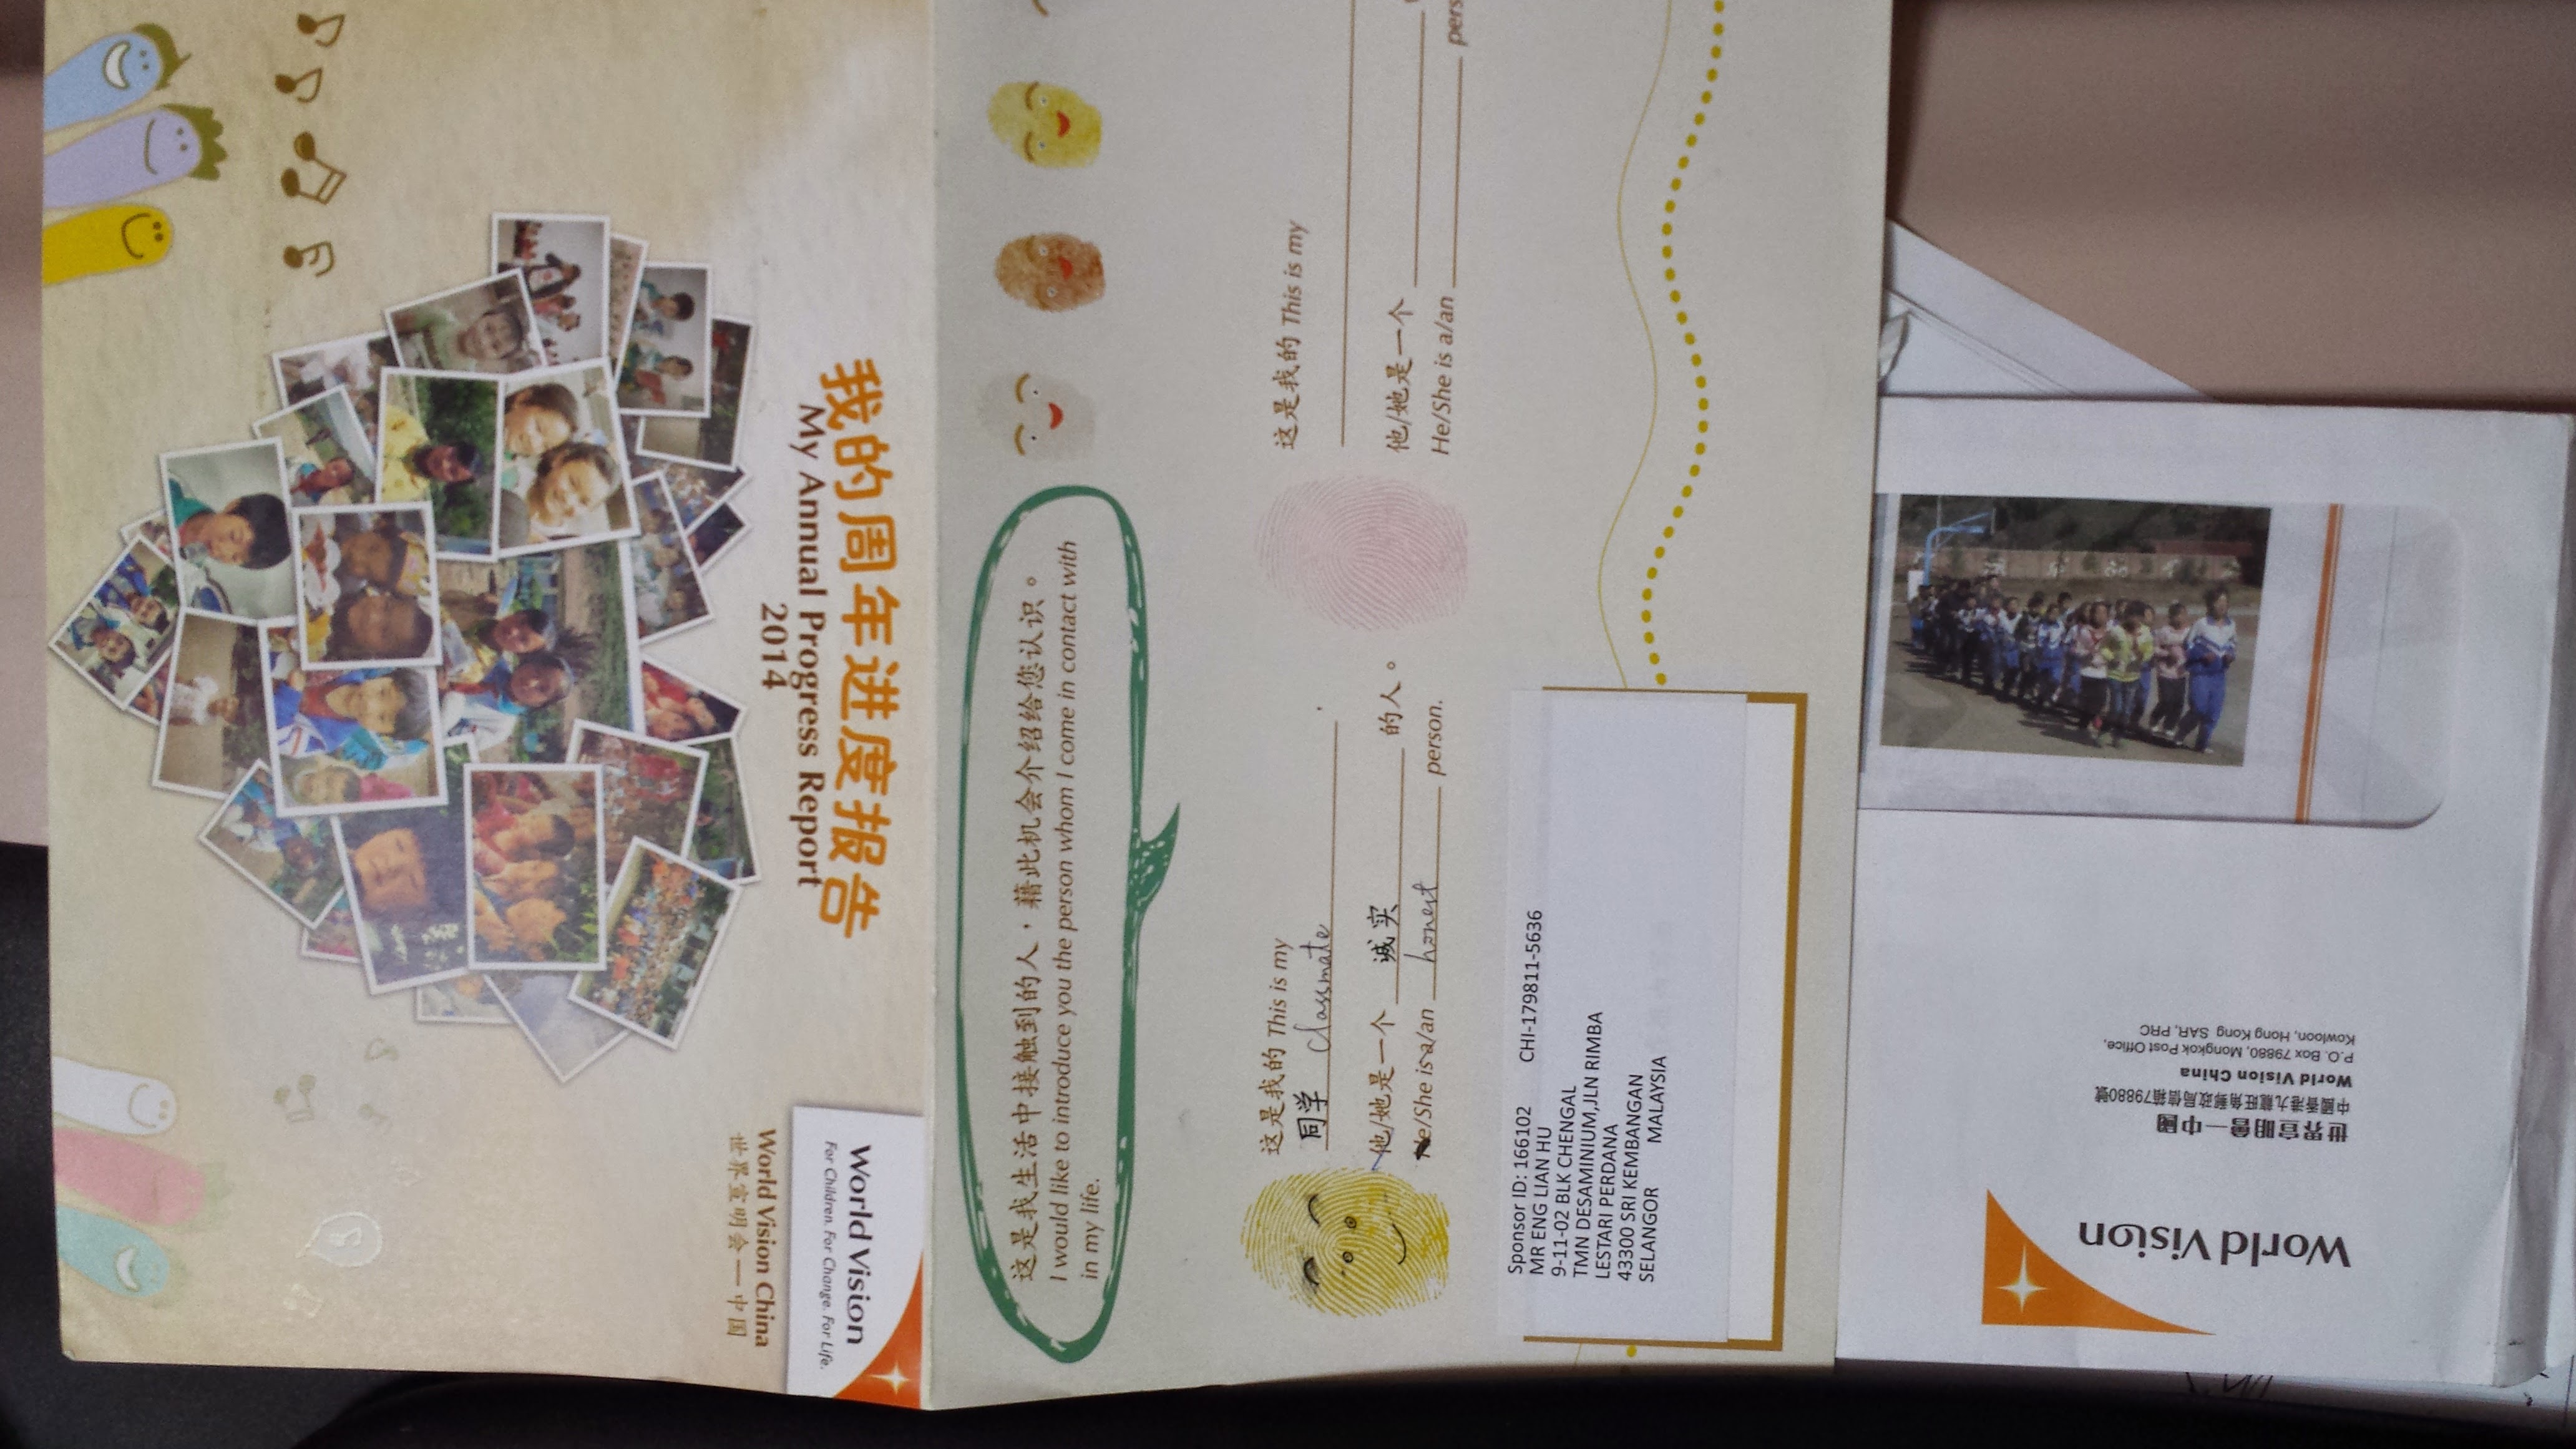 我的周年进度报告
My Annual Progress Report
2014
World Vision China
世界宣明会 — 中国
World Vision
For Children. For Change. For Life.
这是我生活中接触到的人，藉此机会介绍给您认识。
I would like to introduce you the person whom I come in contact with
in my life.
这是我的 This is my
同学 Classmate
他/她是一个 诚实 的人。
He/She is a/an honest person.
这是我的 This is my
他/她是一个
He/She is a/an
Sponsor ID: 166102 CHI-179811-5636
MR ENG LIAN HU
9-11-02 BLK CHENGAL
TMN DESAMINIUM,JLN RIMBA
LESTARI PERDANA
43300 SRI KEMBANGAN
SELANGOR MALAYSIA
World Vision
世界宣明會—中國
中國香港九龍旺角郵政局信箱79880號
World Vision China
P.O. Box 79880, Mongkok Post Office,
Kowloon, Hong Kong SAR, PRC